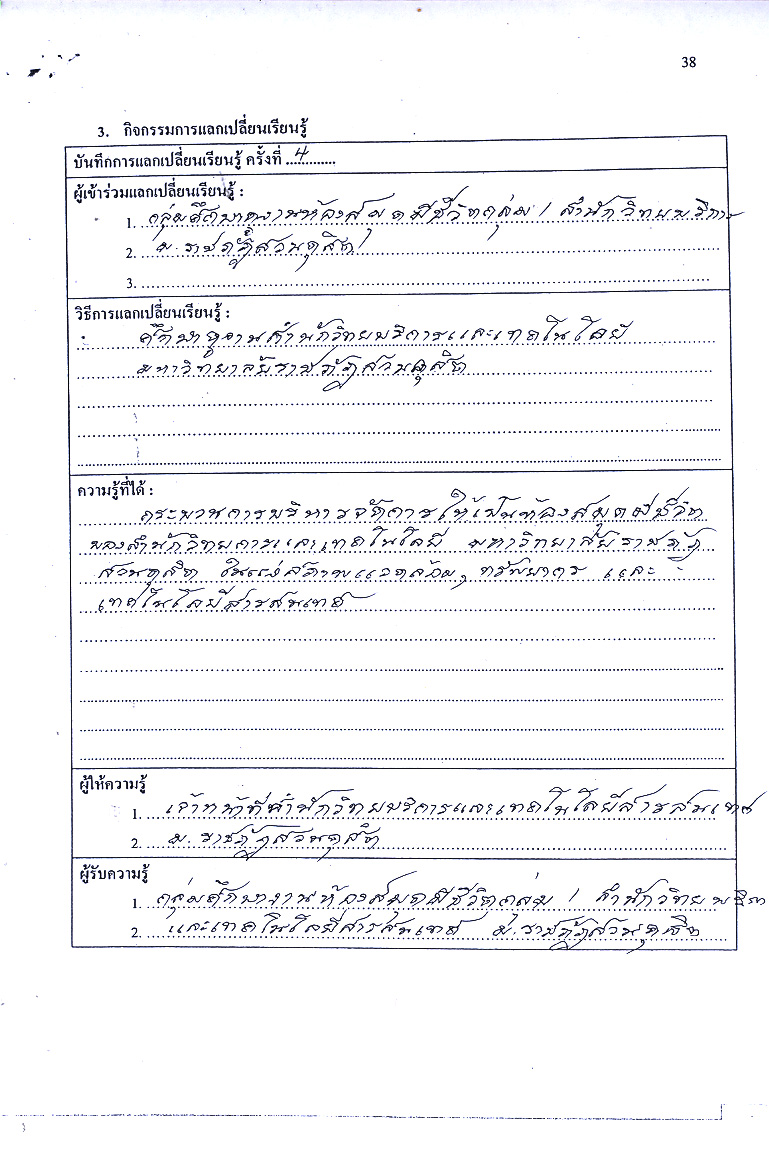 38
3. กิจกรรมการแลกเปลี่ยนเรียนรู้
บันทึกการแลกเปลี่ยนเรียนรู้ ครั้งที่ ...4...
ผู้เข้าร่วมแลกเปลี่ยนเรียนรู้ :
1. กลุ่มศึกษาดูงานห้องสมุดมีชีวิตกลุ่ม 1 สำนักวิทยบริการ
2. ม.ราชภัฏสวนดุสิต
3.
วิธีการแลกเปลี่ยนเรียนรู้ :
ศึกษาดูงานสำนักวิทยบริการและเทคโนโลยี
มหาวิทยาลัยราชภัฏสวนดุสิต
ความรู้ที่ได้ :
กระบวนการบริหารจัดการให้เป็นห้องสมุดมีชีวิต
ของสำนักวิทย และเทคโนโลยี มหาวิทยาลัยราชภัฏ
สวนดุสิต ในแง่สภาพแวดล้อม, ทรัพยากร และ
เทคโนโลยีสารสนเทศ
ผู้ให้ความรู้
1. เจ้าหน้าที่สำนักวิทยบริการและเทคโนโลยีสารสนเทศ
2. ม.ราชภัฏสวนดุสิต
ผู้รับความรู้
1. กลุ่มศึกษางานห้องสมุดมีชีวิตกลุ่ม 1 สำนักวิทย
2. และเทคโนโลยีสารสนเทศ ม.ราชภัฏสวนดุสิต